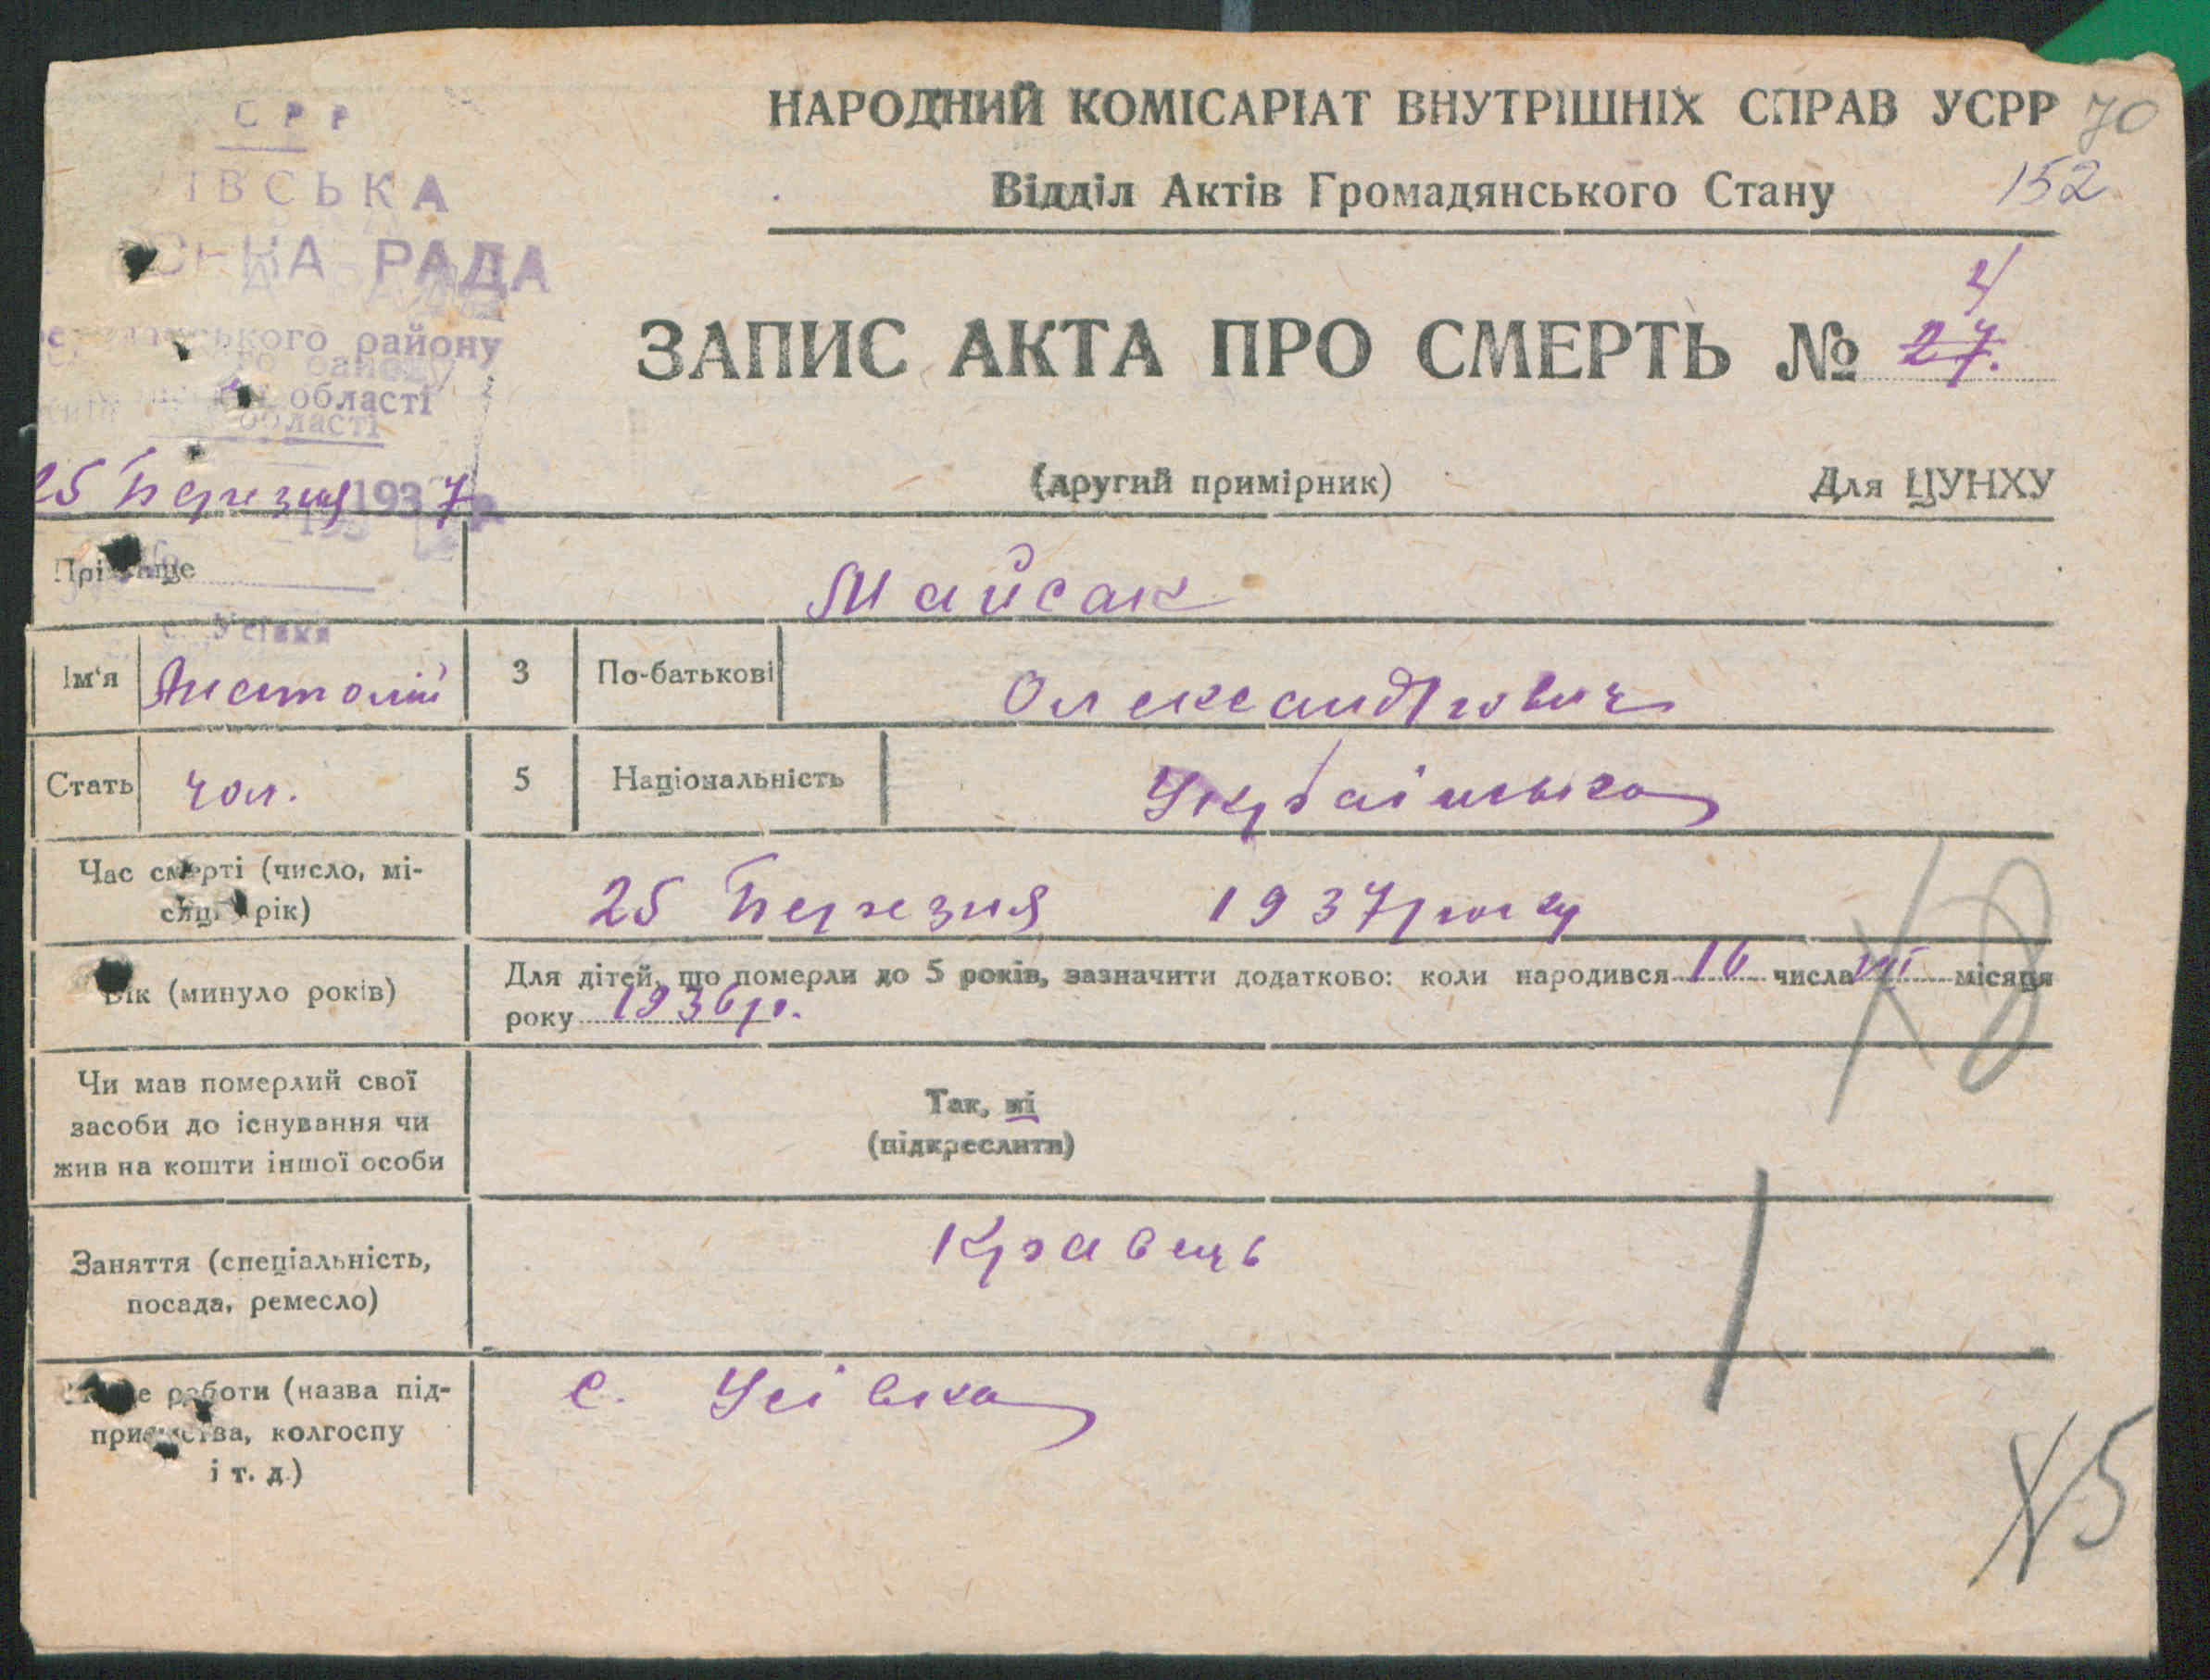 НАРОДНИЙ КОМІСАРІАТ ВНУТРІШНІХ СПРАВ УСРР 70
Відділ Актів Громадянського Стану 152
СРР
ІВСЬКА
РАДА
району
області
області
25 Березня 1937 р.
4
ЗАПИС АКТА ПРО СМЕРТЬ № 27.
(другий примірник) Для ЦУНХУ
Прізвище Майсак
с. Усівка
Ім'я Анатолій 3 По-батькові Олександрович
Стать чол. 5 Національність Українська
Час смерті (число, мі-
сяць рік) 25 Березня 1937 року
Вік (минуло років) Для дітей, що померли до 5 років, зазначити додатково: коли народився 16 числа VII місяця
року 1936 р.
Чи мав померлий свої
засоби до існування чи
жив на кошти іншої особи
Так, ні
(підкреслити)
Заняття (спеціальність,
посада, ремесло)
Кравець
Місце работи (назва під-
приємства, колгоспу
і т. д.)
с. Усівка
Х5